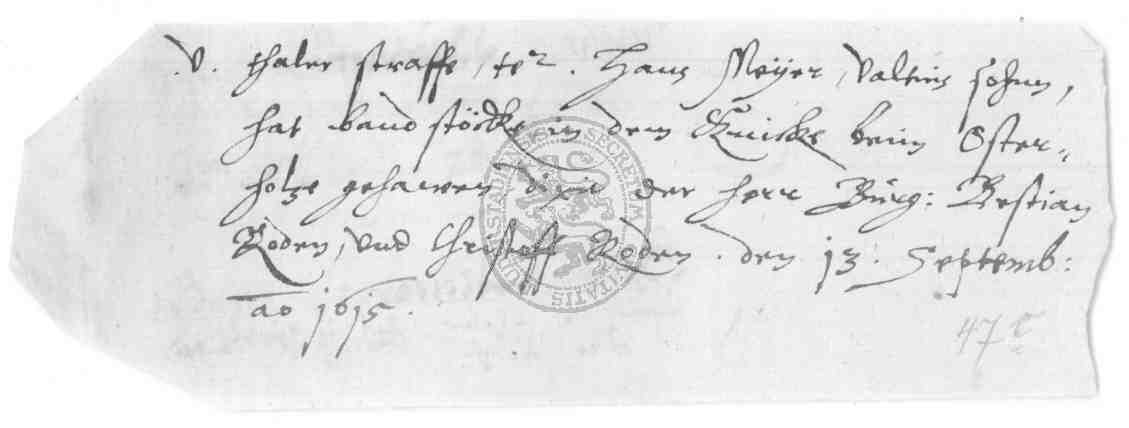 .V. thaler straffe, te². Hans Meÿer, Valtins sohnn,
hat band stöcke in dem Knicke beim Oster„
holtze gehawen dixit der herr Bürg: Bestian
Roden, vnd Christoff Roden . den 13. Septemb:
ao 1615.
47
SECRETUM